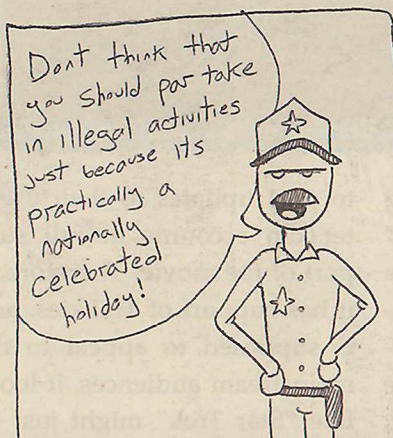 Dont think that
you should par take
in illegal activities
just because its
practically a
nationally
celebrated
holiday!